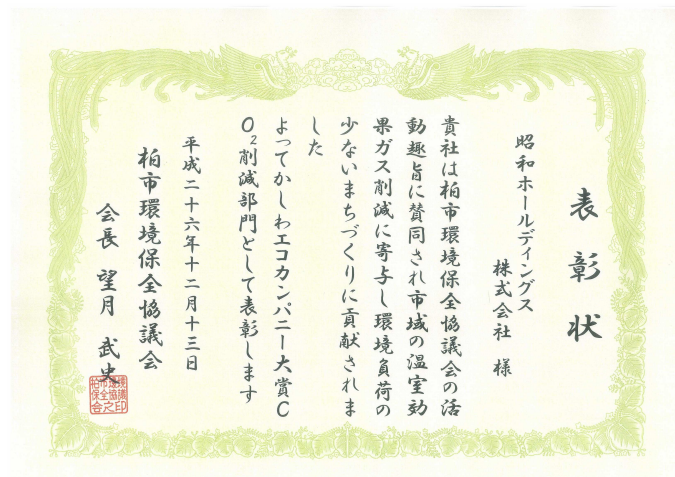 表彰状
昭和ホールディングス
株式会社 様
貴社は柏市環境保全協議会の活
動趣旨に賛同され市域の温室効
果ガス削減に寄与し環境負荷の
少ないまちづくりに貢献されま
した
よってかしわエコカンパニー大賞C
O2削減部門として表彰します
平成二十六年十二月十三日
柏市環境保全協議会
会長 望月 武史